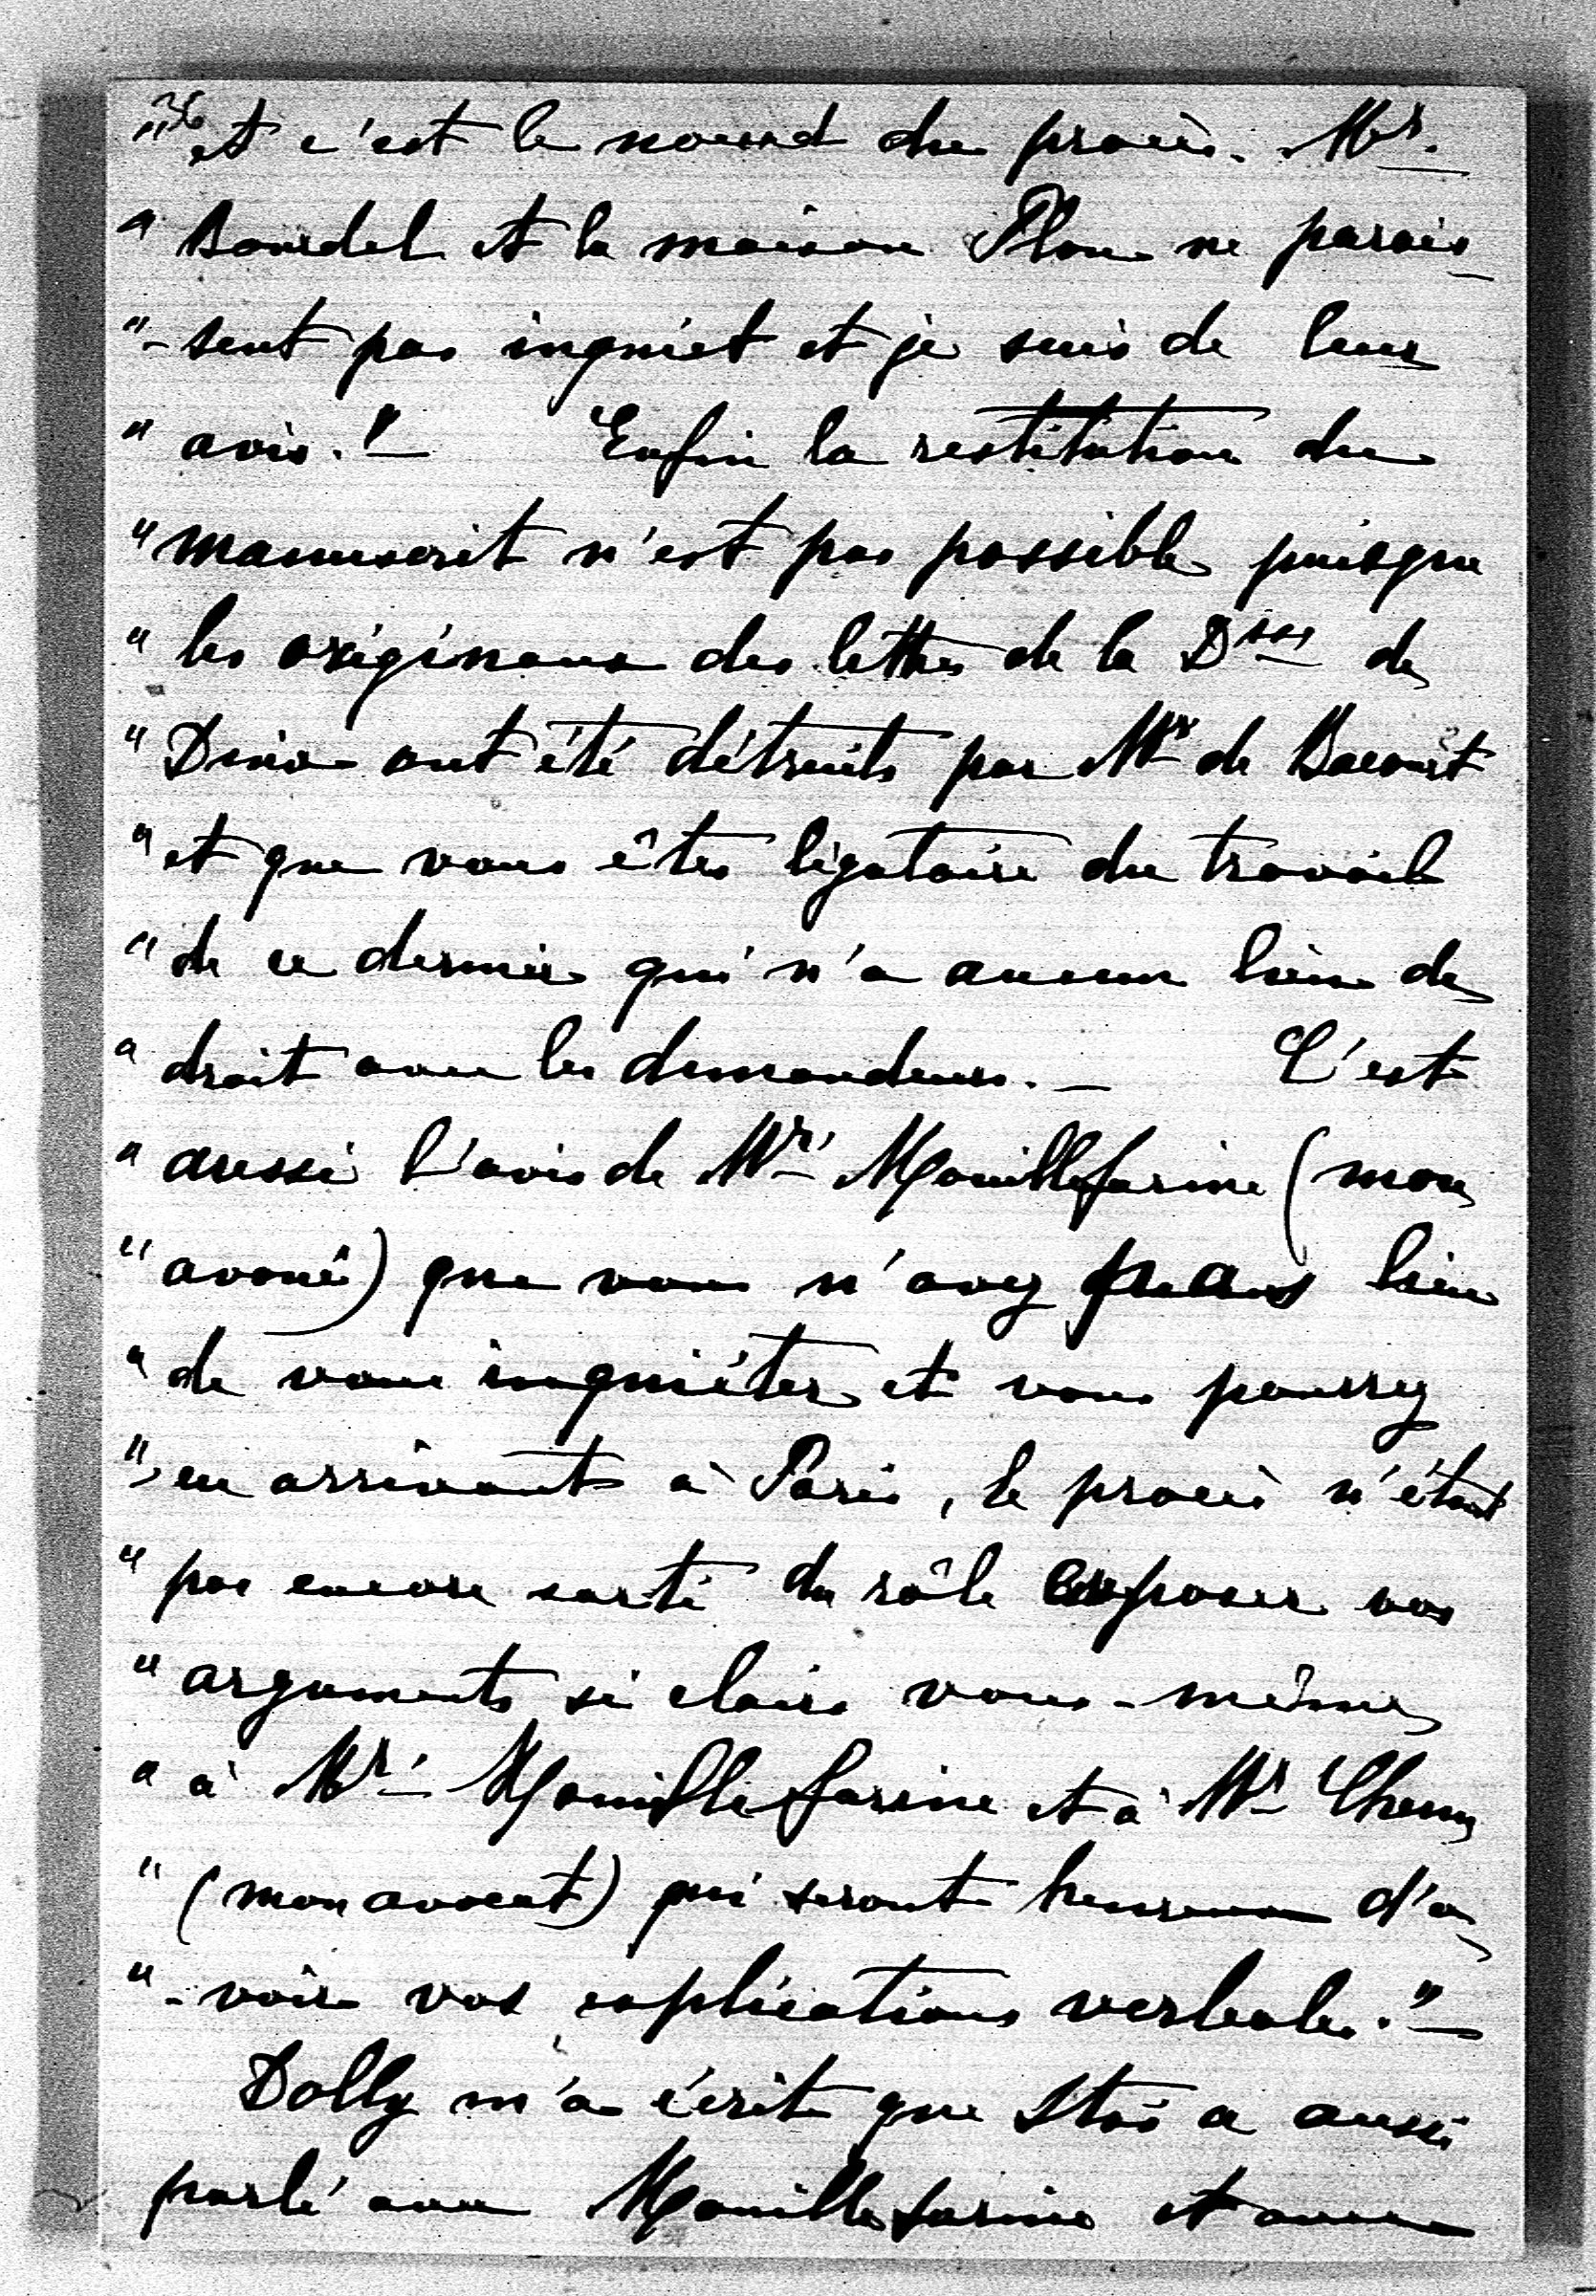 " et c'est le noeud du procès. Mr.
" Bourdel et la maison Plon ne parais
" - sent pas inquiet et je suis de leur
" avis. " — Enfin la restitution du
" manuscrit n'est pas possible puisque
" les originaux des lettres de la Dsse de
" Dino ont été détruits par Mr de Bacourt
" et que vous êtes légataire du travail
" de ce dernier qui n'a aucun lien de
" droit avec les demandeurs. — C'est
" aussi l'avis de Mr. Mouillefarine (mon
" avoué) que vous n'avez pas lieu
" de vous inquiéter et vous pourrez
" en arrivant à Paris, le procès n'étant
" pas encore sorti du rôle exposer vos
" arguments si clairs vous-même
" à Mr. Mouillefarine et à Mr
" (mon avocat) qui seront heureux d'a
" - voir vos explications verbales. " —
Dolly m'a écrit que Stas a aussi
parlé avec Mouillefarine et avec